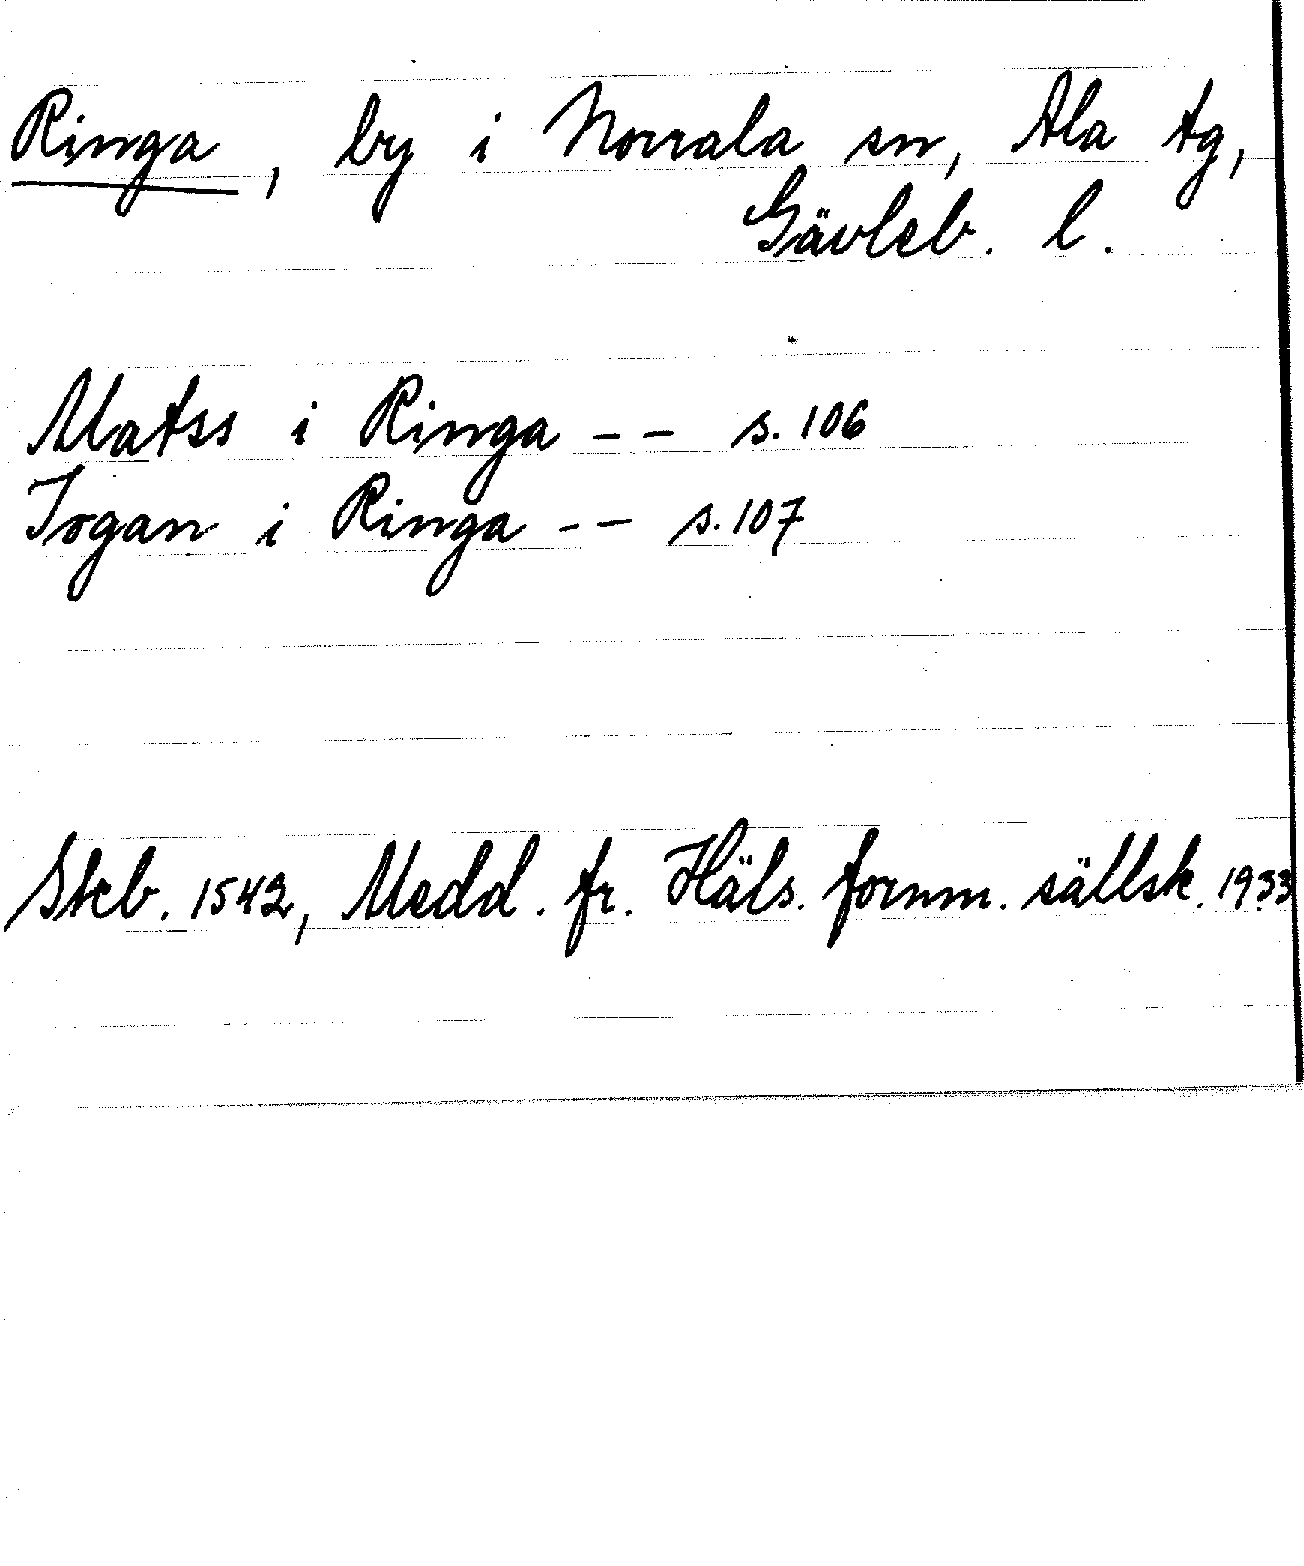 Ringa, by i Norrala sn, Ala tg,
Gävleb. l.
Matss i Ringa -- s. 106
Jogan i Ringa -- s. 107
Skb. 1542, Medd. fr. Häls. fornm. sällsk. 1933